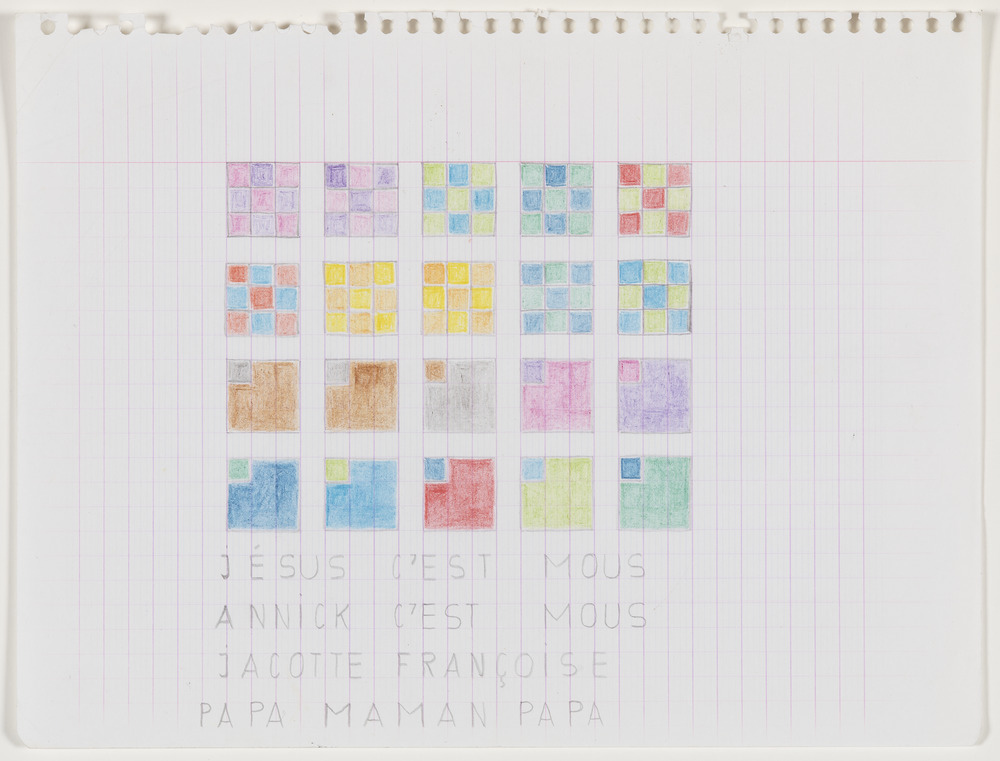 JÉSUS C'EST MOUS
ANNiCK C'EST MOUS
JACOTTE FRANÇOiSE
PAPA MAMAN PAPA